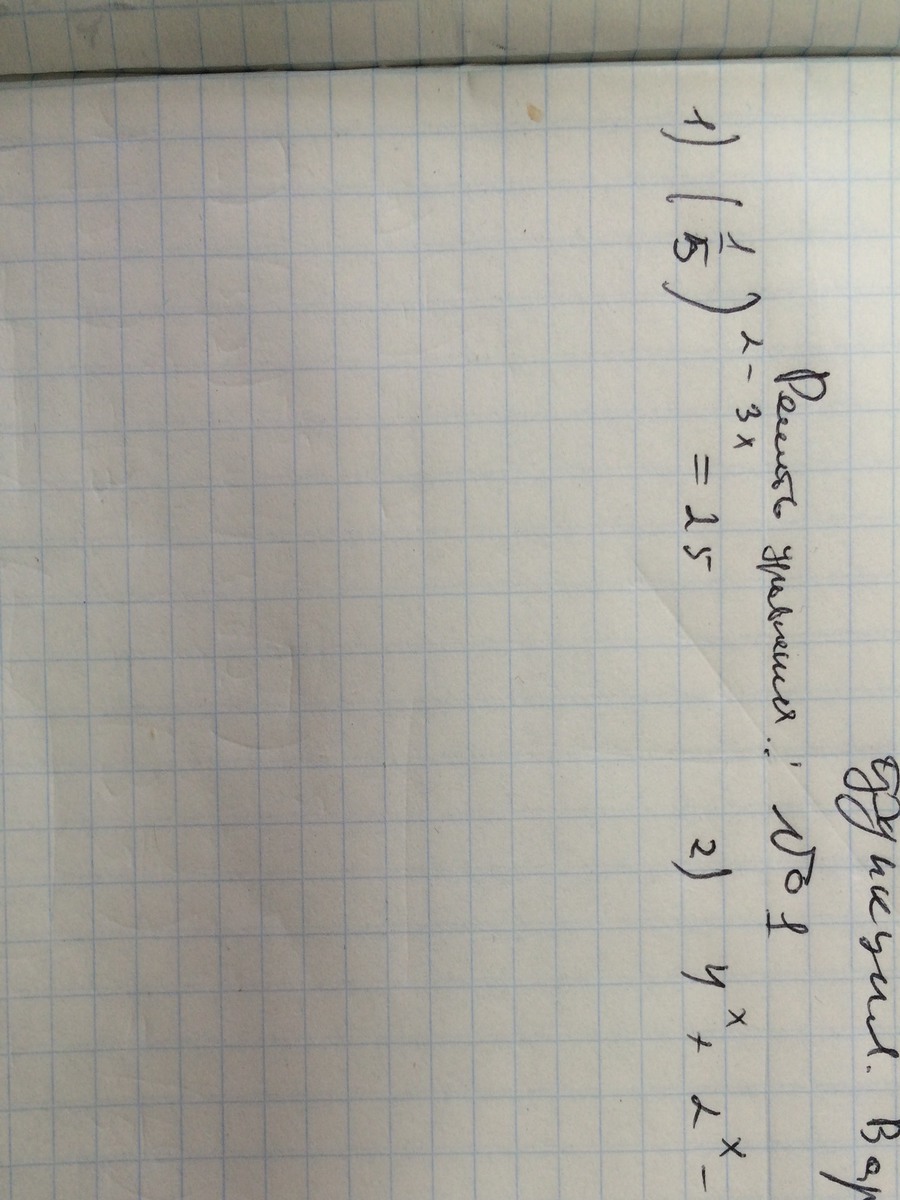 функция. Вар
Решить уравнения: №1
1) (1/5)^2-3x = 25 2) 4^x + 2^x -